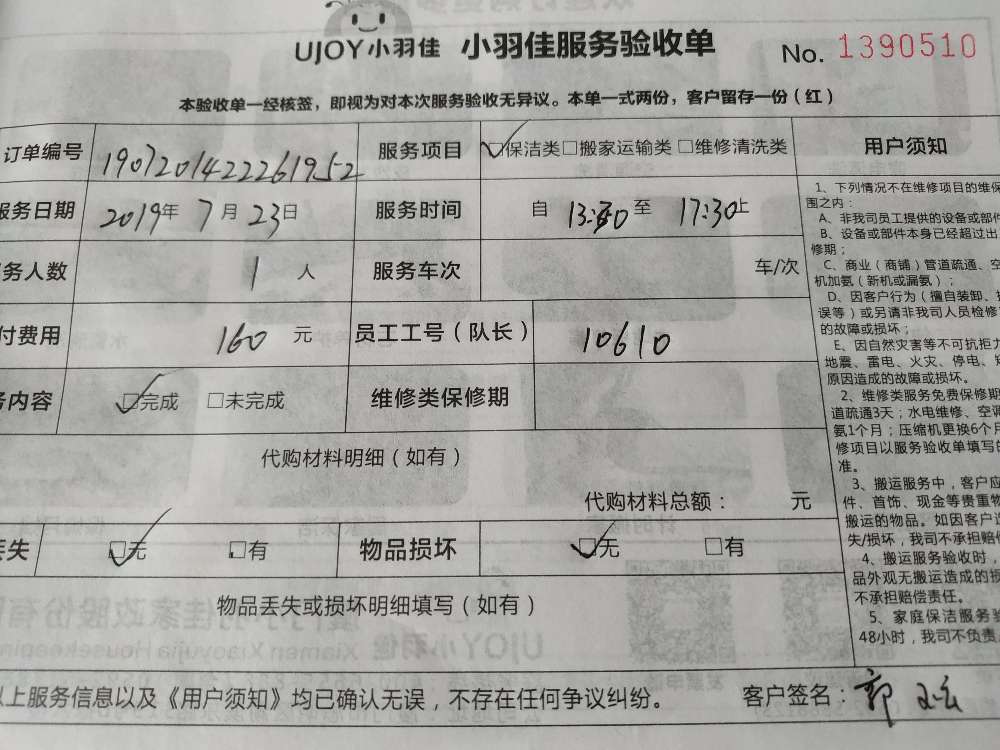 UJOY小羽佳 小羽佳服务验收单 No. 1390510
本验收单一经核签，即视为对本次服务验收无异议。本单一式两份，客户留存一份（红）
订单编号 190720142226195 2 服务项目 ☑保洁类□搬家运输类 □维修清洗类 用户须知
服务日期 2019年 7月 23日 服务时间 自 13:30 至 17:30止
务人数 1 人 服务车次 车/次
付费用 160 元 员工工号（队长） 10610
务内容 ☑完成 □未完成 维修类保修期
代购材料明细（如有）
代购材料总额： 元
丢失 ☑无 □有 物品损坏 ☑无 □有
物品丢失或损坏明细填写（如有）
以上服务信息以及《用户须知》均已确认无误，不存在任何争议纠纷。 客户签名：郭
1、下列情况不在维修项目的维保
围之内：
A、非我司员工提供的设备或部件
B、设备或部件本身已经超过出
修期；
C、商业（商铺）管道疏通、空
机加氨（新机或漏氨）；
D、因客户行为（擅自装卸、
误等）或另请非我司人员检修
的故障或损坏；
E、因自然灾害等不可抗拒力
地震、雷电、火灾、停电、
原因造成的故障或损坏。
2、维修类服务免费保修期
道疏通3天；水电维修、空调
氨1个月；压缩机更换6个月
修项目以服务验收单填写的
准。
3、搬运服务中，客户应
件、首饰、现金等贵重物
搬运的物品。如因客户
失/损坏，我司不承担赔偿
4、搬运服务验收时，
品外观无搬运造成的损
不承担赔偿责任。
5、家庭保洁服务验
48小时，我司不负责